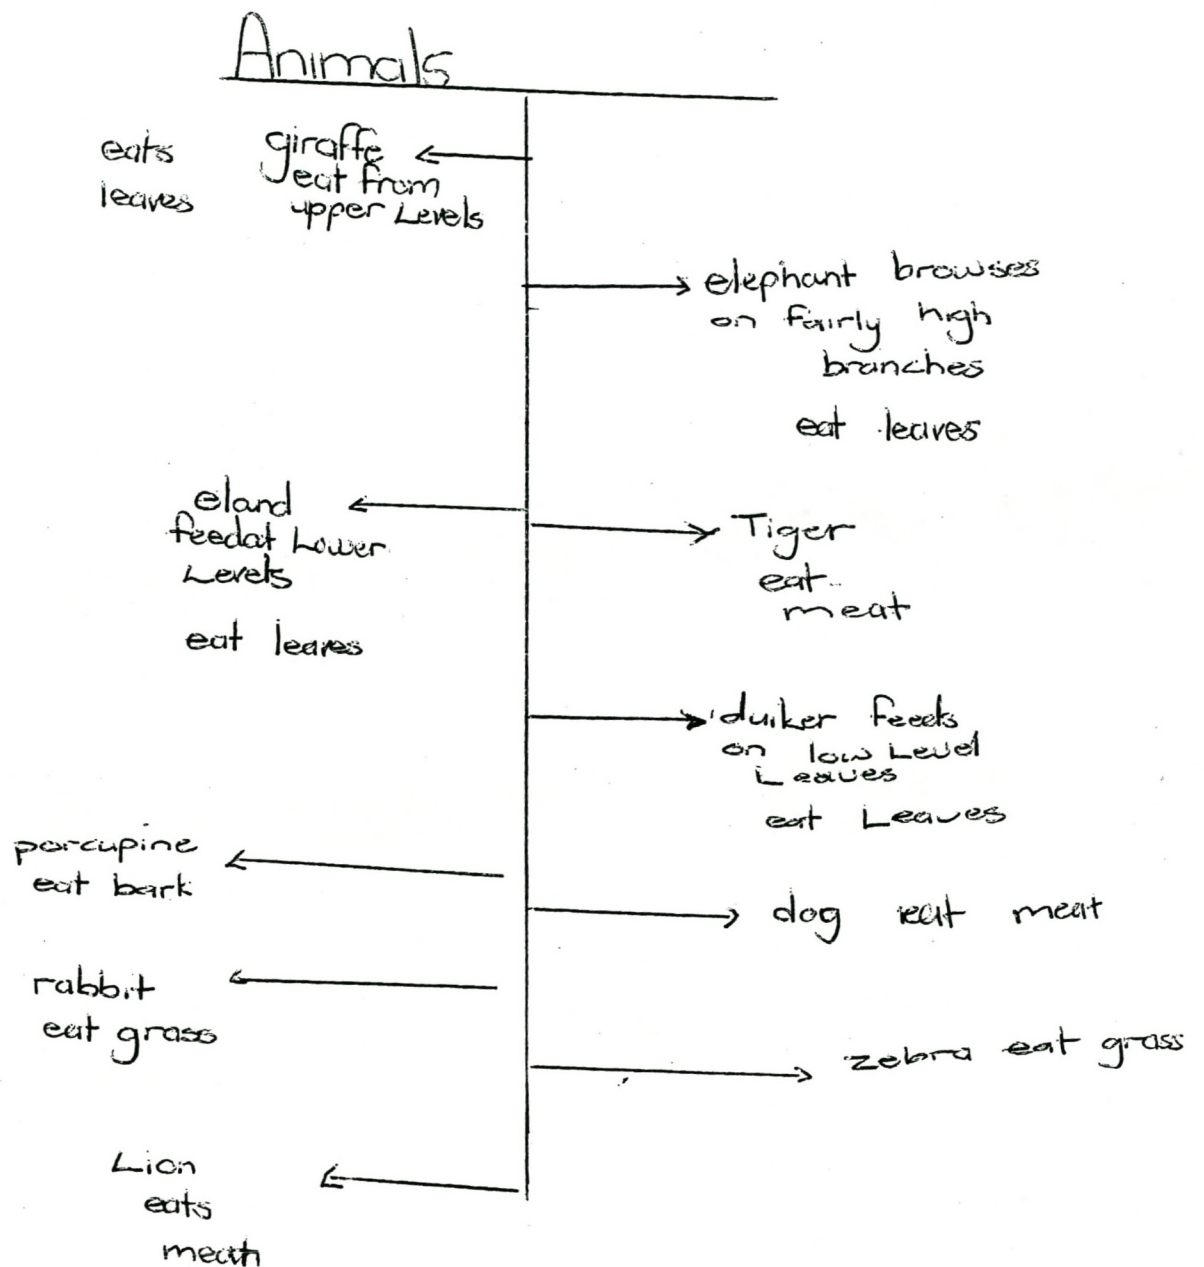 Animals
eats giraffe
leaves eat from
upper Levels
elephant browses
on fairly high
branches
eat leaves
eland
feedat Lower
Levels
eat leaves
Tiger
eat
meat
duiker feeds
on low Level
Leaves
eat Leaves
porcupine
eat bark
dog eat meat
rabbit
eat grass
zebra eat grass
Lion
eats
meat